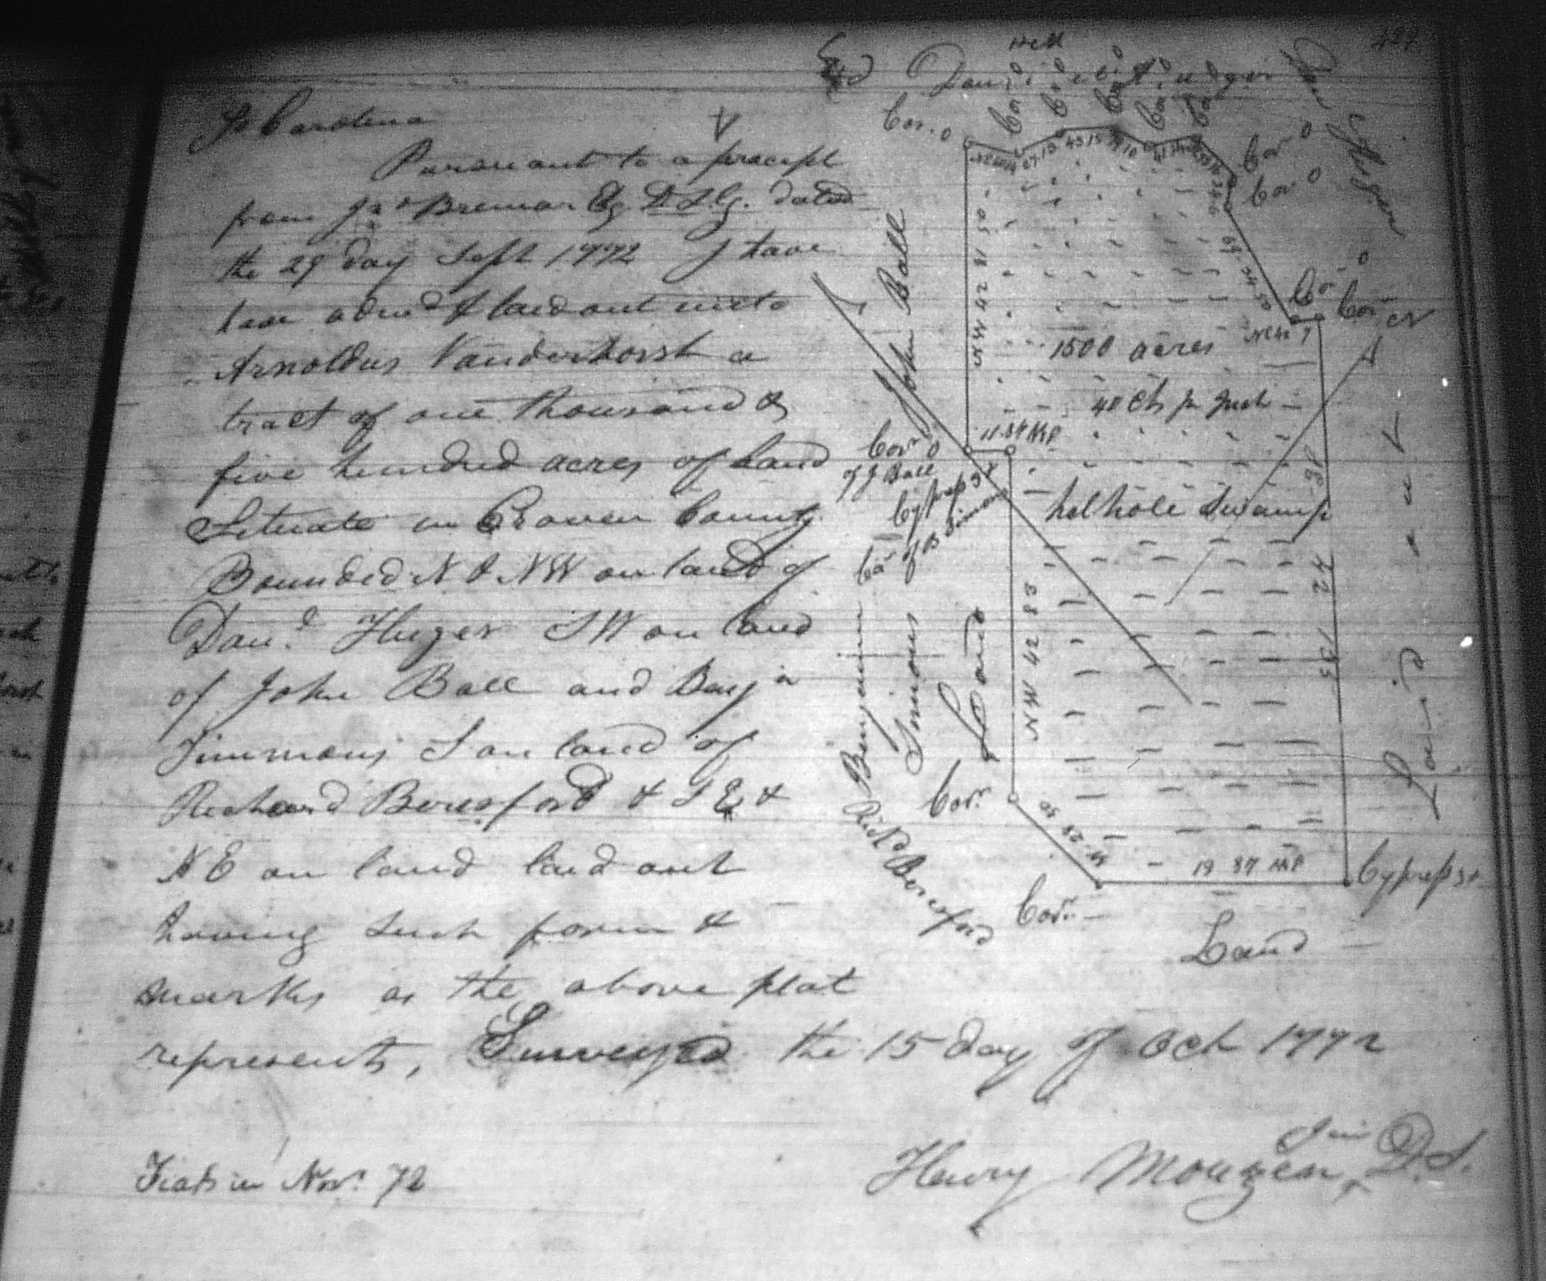 So Carolina
Pursuant to a precept
from Jno Bremar Esq D S G. dated
the 29 day Sept 1772 I have
have adme'd & laid out unto
Arnoldus Vanderhorst a
tract of one thousand &
five hundred acres of Land
Situate in Craven County
Bounded N & NW on land of
Dan.l Huger SW on land
of John Ball and Benj a
Simmons S on land of
Richard Beresford & S E &
N E on land laid out
having such form &
marks as the above plat
represents, Surveyed the 15 day of Oct 1772
Henry Mouzon Jun D.S.
Fiats in Novr 72
Cor. o
Cor
Cor
Cor
Cor
Cor
Cor o
Cor o
Cor o
Cor
N
John Ball
NW 42 81 50
1500 acres
40 Ch pr Inch
Cor o
of J Ball
Cypress 3 x
Cor of B Simmons
helhole Swamp
Benjamin
Simons
Land
NW 42 83
Cor.
Richd Beresford
Cor.
19 87
Cypress 3x
Land
vacant
Land